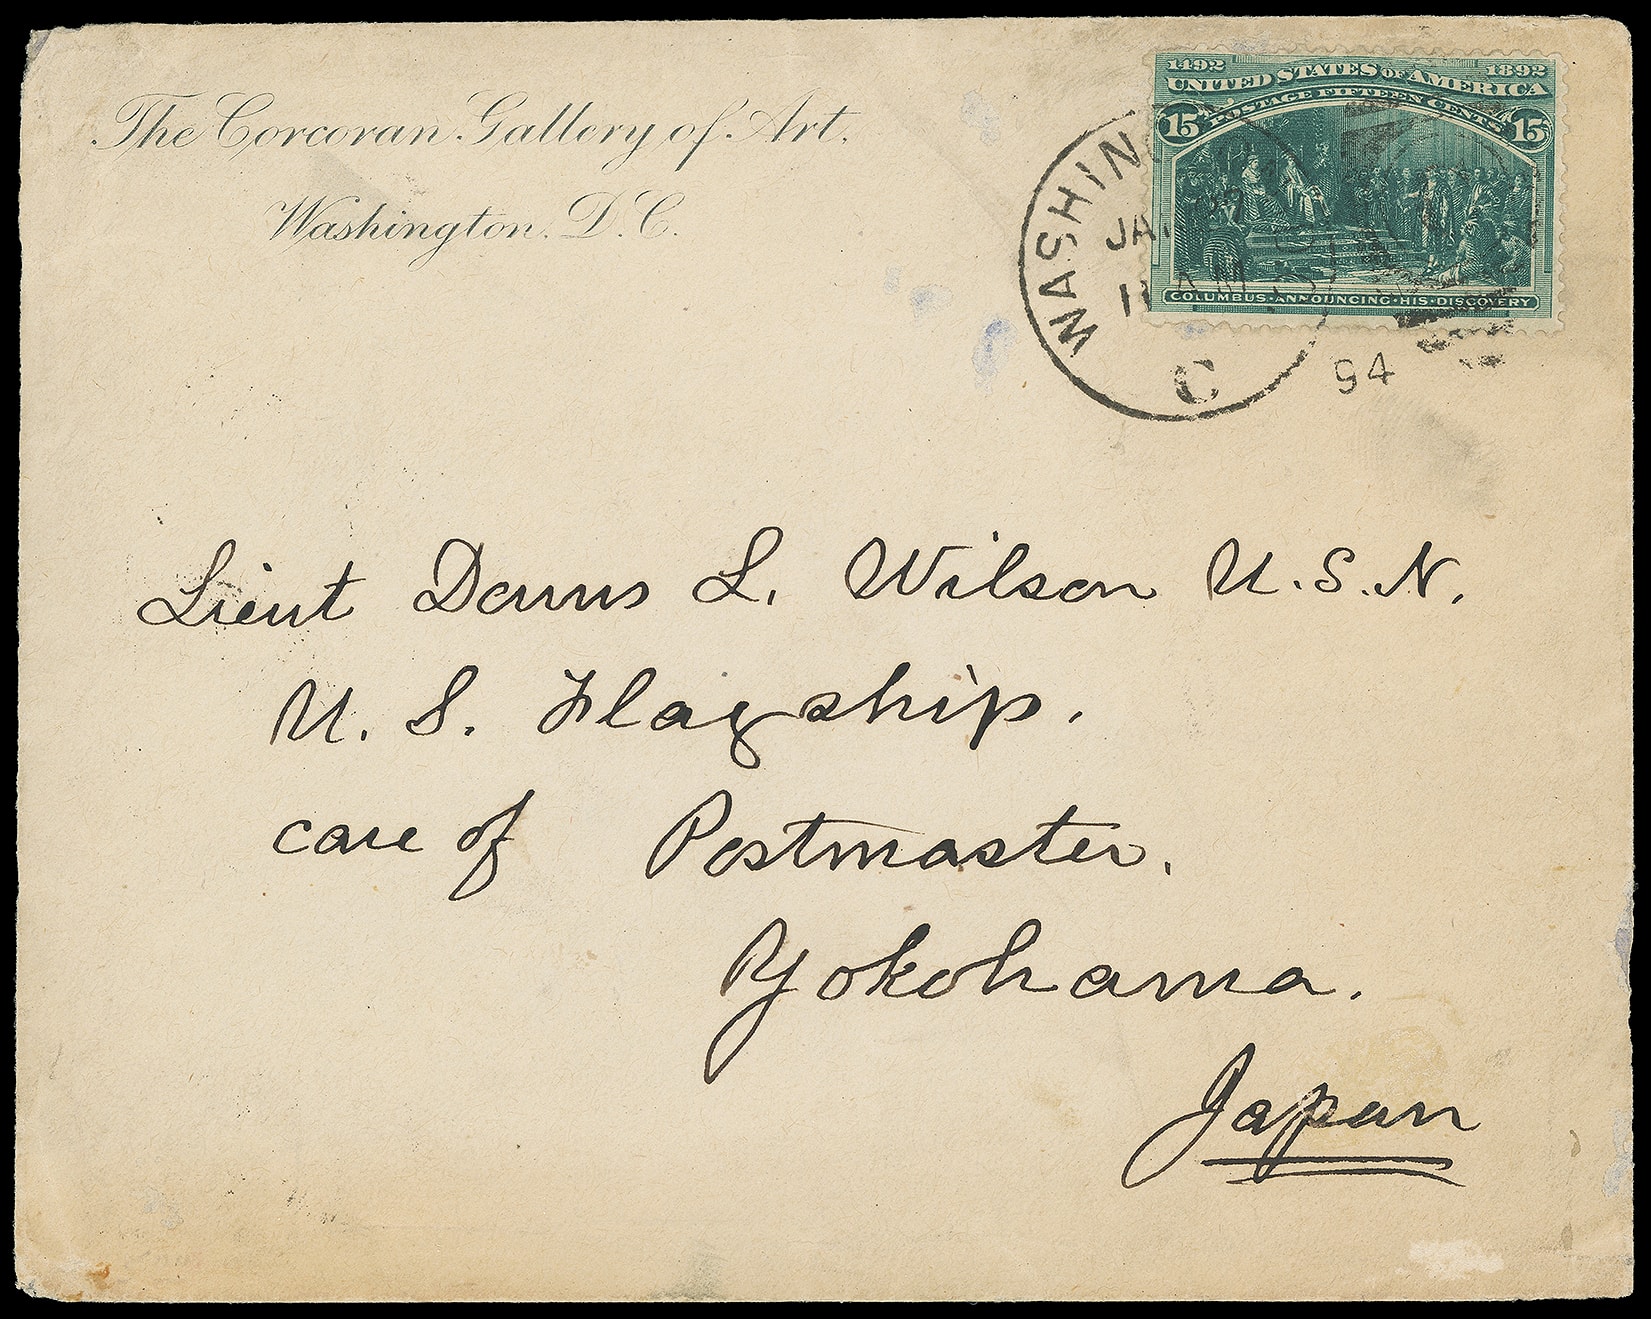 The Corcoran Gallery of Art.
Washington. D.C.
1492 1892
UNITED STATES OF AMERICA
POSTAGE FIFTEEN CENTS
15 15
COLUMBUS·ANNOUNCING·HIS·DISCOVERY
WASHIN
JA
11 AM
94
C
Lieut Dennis L. Wilson U.S.N.
U. S. Flagship.
care of Postmaster.
Yokohama.
Japan